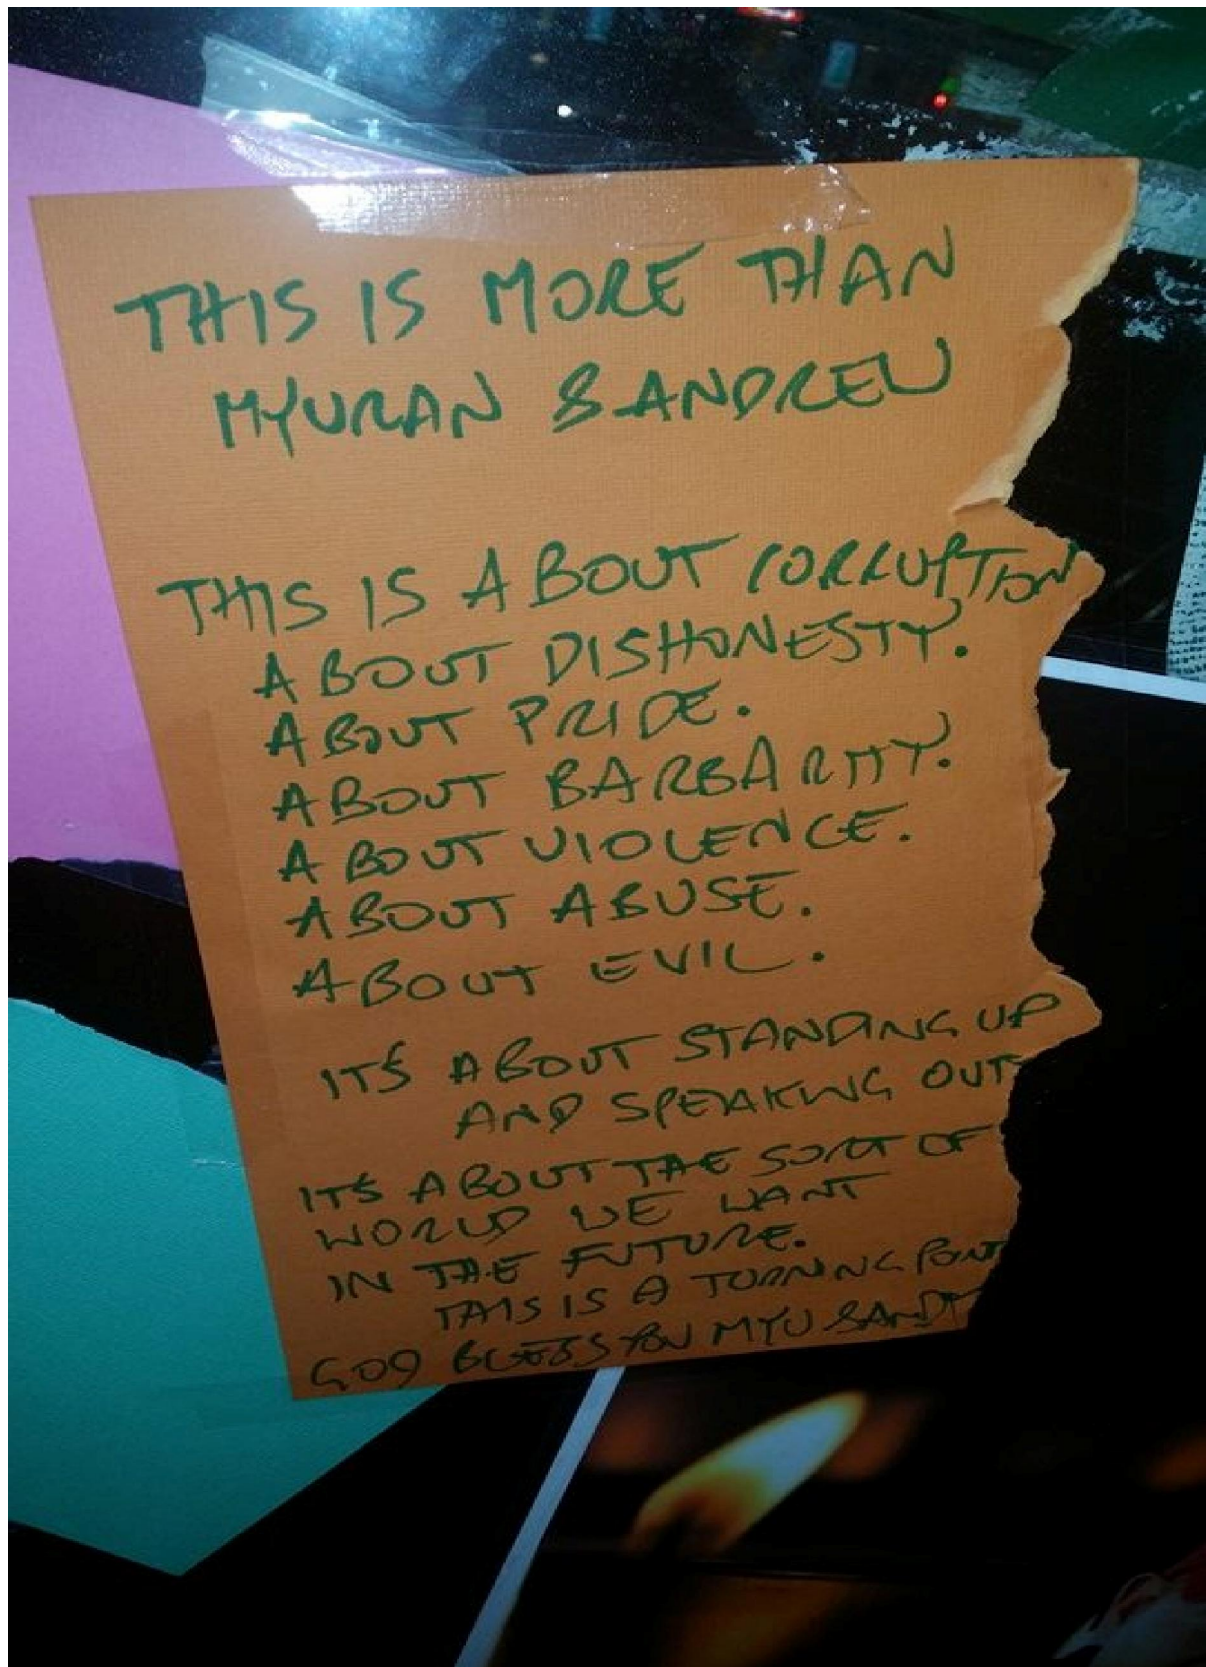 THIS IS MORE THAN
MYURAN & ANDREW
THIS IS ABOUT CORRUPTION
ABOUT DISHONESTY.
ABOUT PRIDE.
ABOUT BARBARITY.
ABOUT VIOLENCE.
ABOUT ABUSE.
ABOUT EVIL.
IT'S ABOUT STANDING UP
AND SPEAKING OUT
IT'S ABOUT THE SORT OF
WORLD WE WANT
IN THE FUTURE.
THIS IS A TURNING POINT
GOD BLESS YOU MYU & ANDY